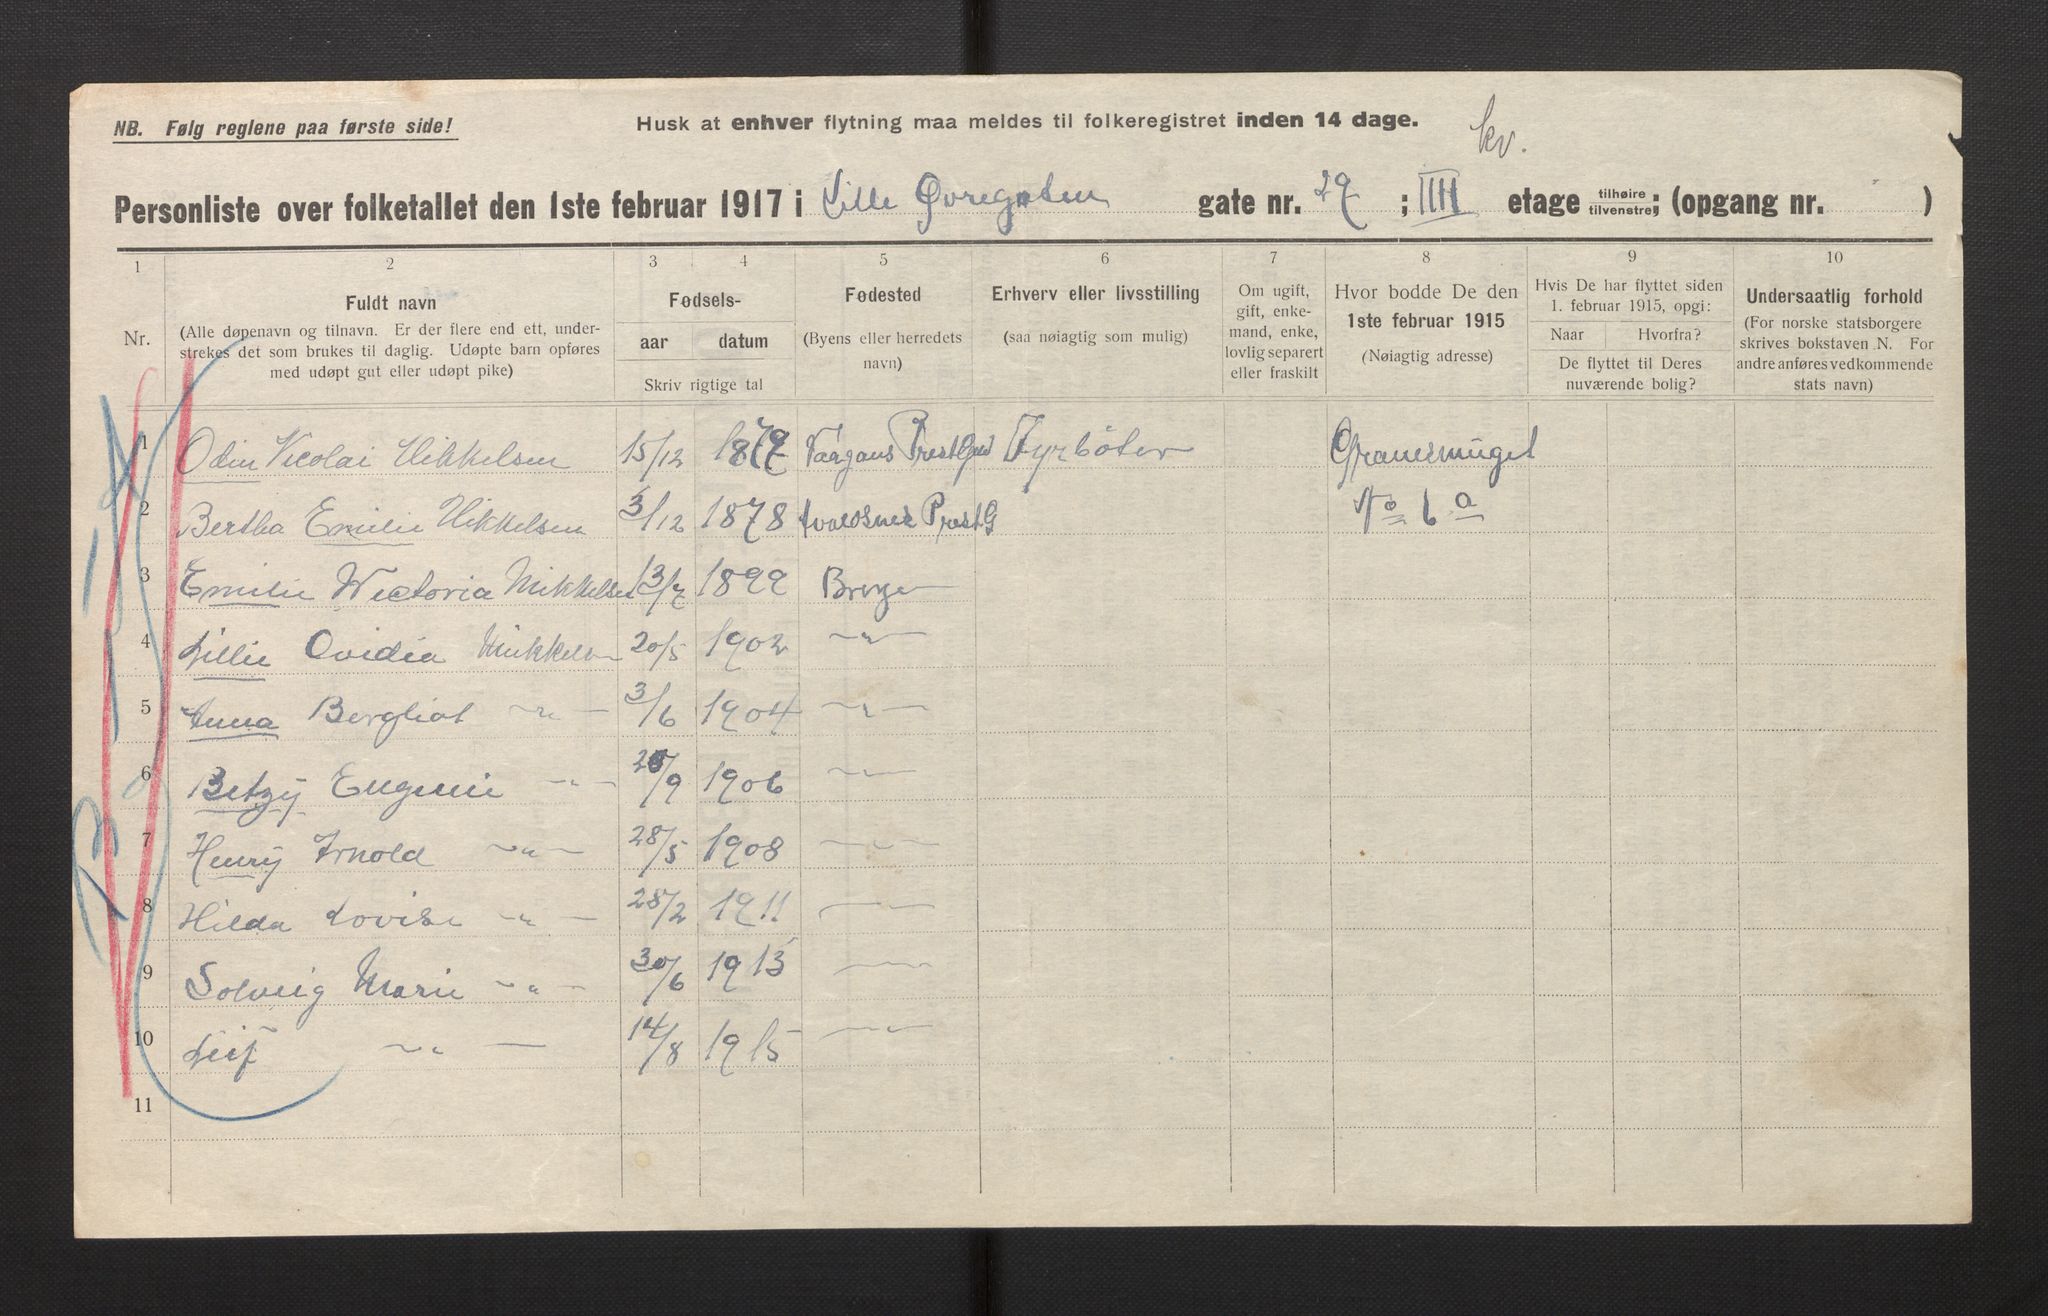 NB. Følg reglene paa første side!
Husk at enhver flytning maa meldes til folkeregistret inden 14 dage.
kv.
Personliste over folketallet den 1ste februar 1917 i Lille Øvregaten gate nr. 29 ; III etage tilhøire tilvenstre; (opgang nr. )
1 2 3 4 5 6 7 8 9 10
Nr.
Fuldt navn
(Alle døpenavn og tilnavn. Er der flere end ett, under-
strekes det som brukes til daglig. Udøpte barn opføres
med udøpt gut eller udøpt pike)
Fødsels-
aar datum
Skriv rigtige tal
Fødested
(Byens eller herredets
navn)
Erhverv eller livsstilling
(saa nøiagtig som mulig)
Om ugift,
gift, enke-
mand, enke,
lovlig separert
eller fraskilt
Hvor bodde De den
1ste februar 1915
(Nøiagtig adresse)
Hvis De har flyttet siden
1. februar 1915, opgi:
Naar Hvorfra?
De flyttet til Deres
nuværende bolig?
Undersaatlig forhold
(For norske statsborgere
skrives bokstaven N. For
andre anføres vedkommende
stats navn)
1 Odin Nicolai Mikkelsen 15/12 1879 Fyrbøter
2 Bertha Emilie Mikkelsen 3/12 1878 No 6 a
3 Emilie Wictoria Mikkelsen 13/7 1899 Bergen
4 Lillie Ovidia Mikkelsen 20/5 1902 -"-
5 Anna Bergliot -"- 3/6 1904 -"-
6 Betzy Eugenie -"- /9 1906 -"-
7 Henry Arnold -"- 28/5 1908 -"-
8 Hilda Lovise -"- 28/2 1911 -"-
9 Solveig Marie -"- 30/6 1913 -"-
10 Leif -"- 14/8 1915 -"-
11